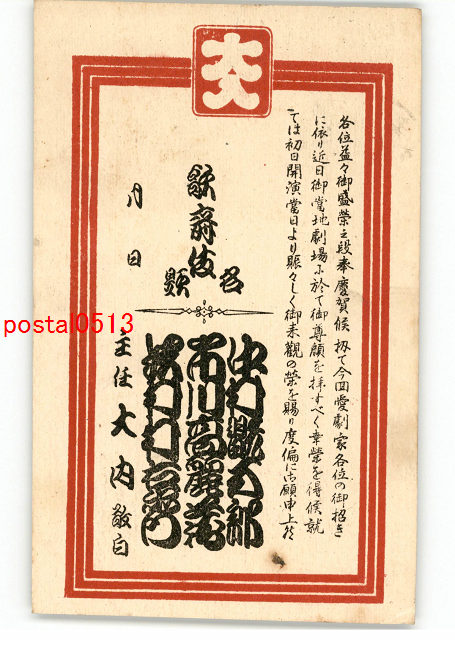 各位益々御盛榮之段奉慶賀候 扨て今回愛劇家各位の御招き
に依り近日御當地劇場に於て御尊顔を拝すべく幸榮を得候就
ては初日開演當日より賑々しく御来觀の榮を賜り度偏に御願申上候
歌舞伎
名題
中村五郎
市川高麗蔵
村右衛門
月 日
主任 大内 敬白
postal0513